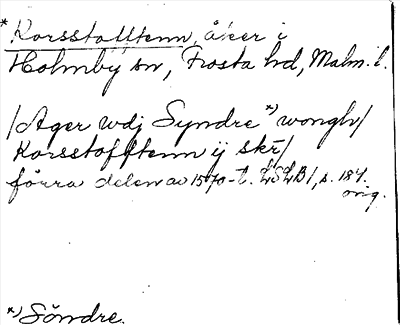 *Korsstofftenn, åker i
Holmby sn, Frosta hd, Malm. l.
/Ager wdj Syndre *) wongh/
Korsstofftenn ij skr/
förra delen av 1570-t. LSLB1, s. 184.
orig.
*) Söndre.